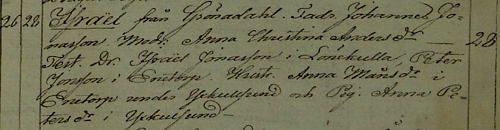 26 28 Israël från Grönadahl. Fad. Johannes Jo-
nasson Modr. Anna Christina Anders dr 28
Test. Dr. Israël Jonasson i Lönskulla, Peter
Jonsson i Erutorp. Hustr. Anna Måns dr i
Erutorp under Yckullsund och Pig. Anna Pe-
ters dr i Yckullsund